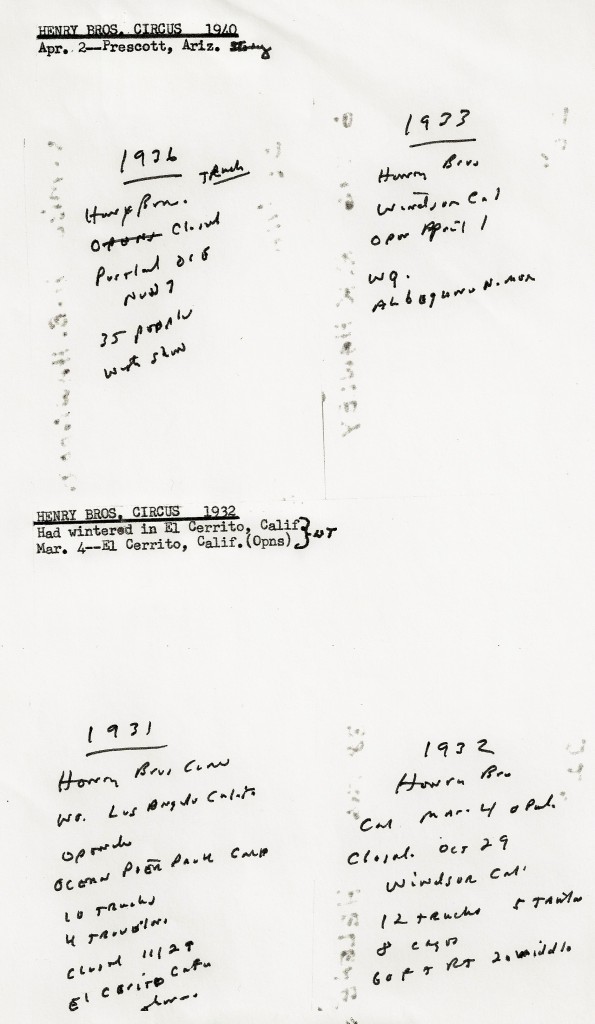 HENRY BROS. CIRCUS 1940
Apr. 2--Prescott, Ariz.
1936
Truck
Henry Bros.
Opens Closed
Portland Ore
Nov 7
35 people
with show
1933
Henry Bros
Windsor Cal
Open April 1
WQ.
Albequrqu N. Mex
HENRY BROS. CIRCUS 1932
Had wintered in El Cerrito, Calif
Mar. 4--El Cerrito, Calif.(Opns)
1931
Henry Bros Circus
WQ. Los Angeles
Opened
Ocean Pier Park
10 Trucks
4 Trailers
Closed 11/29
El Cerito
1932
Henry Bro
Cal Mar. 4 open
Closed. Oct 29
Windsor Cal
12 trucks 5 Trailers
8 cages
60 Ft RT